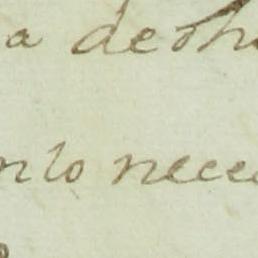 a desh
n lo nece